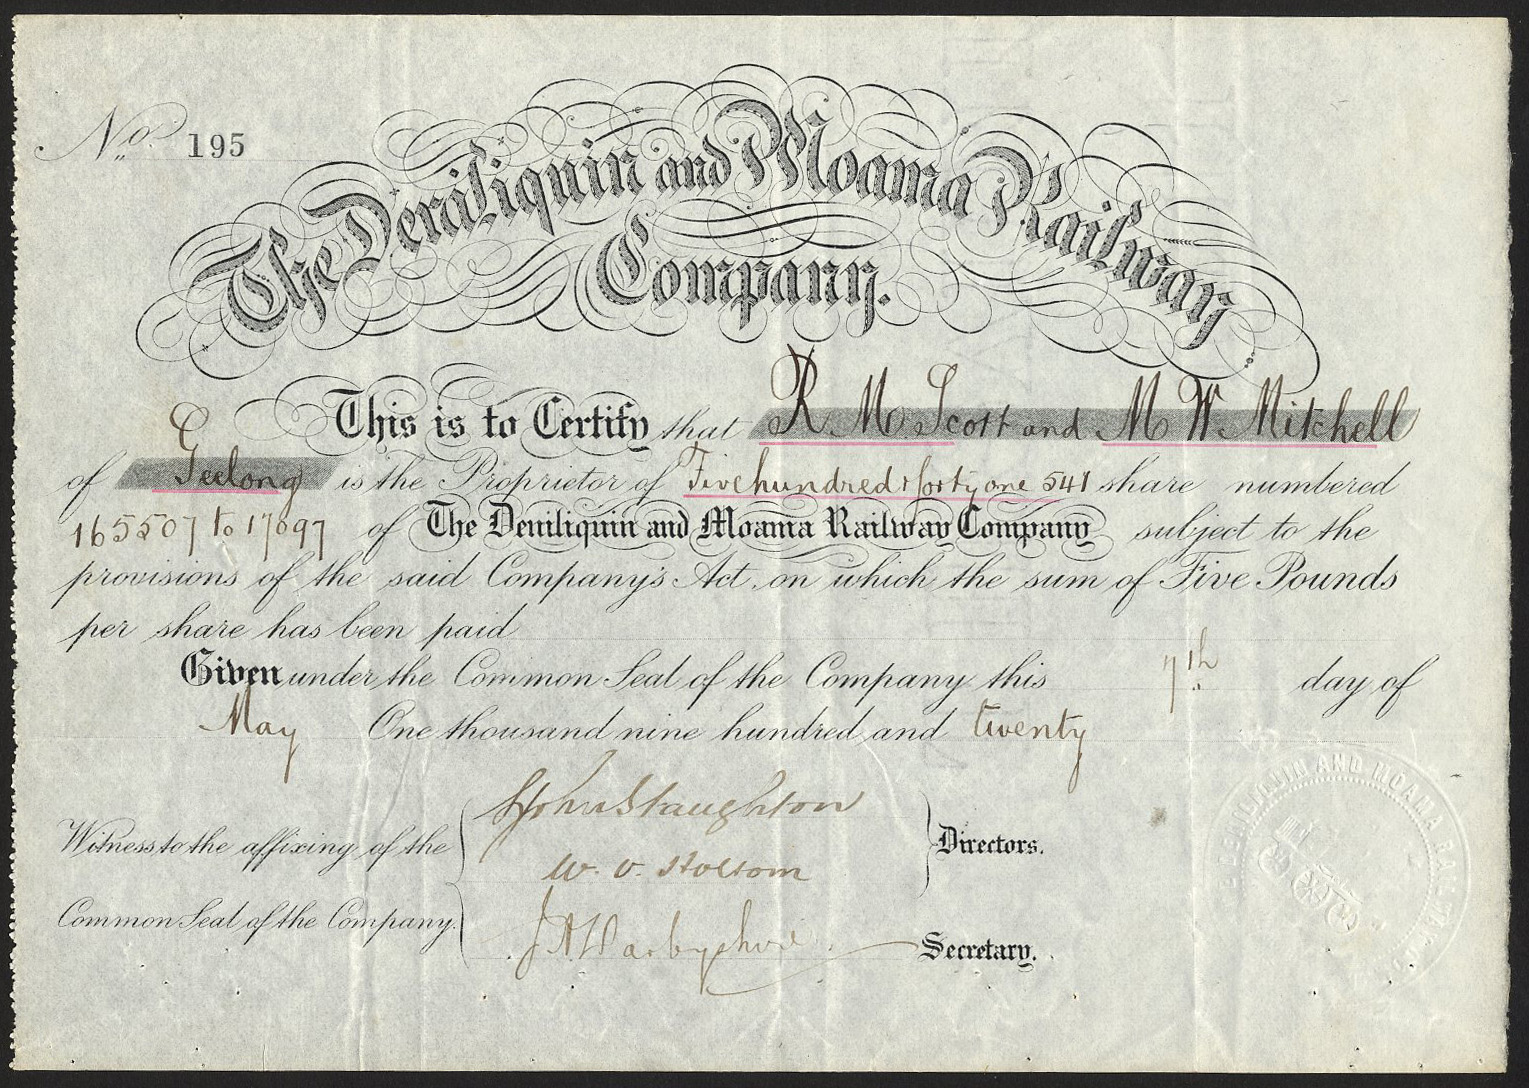 No. 195
The Deniliquin and Moama Railway
Company.
This is to Certify that R M Scott and M W Mitchell
of Geelong is the Proprietor of Five hundred & forty one 541 share numbered
165507 to 17097 of The Deniliquin and Moama Railway Company subject to the
provisions of the said Company's Act, on which the sum of Five Pounds
per share has been paid
Given under the Common Seal of the Company this 7th day of
May One thousand nine hundred and twenty
Witness to the affixing of the
Common Seal of the Company.
S John Staughton
W. V.
Directors.
J A Darbyshire
Secretary.
DENILIQUIN AND MOAMA RAILWAY